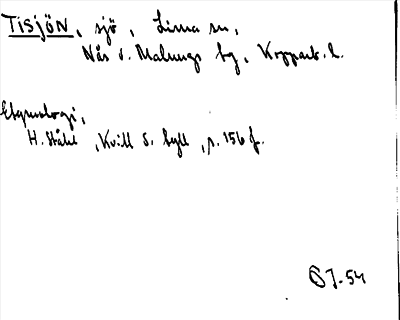 TISJÖN, sjö, Lima sn,
Nås o. Malungs bg, Kopparb. l.
Etymologi,
H. Ståhl, Kvill o. tyll, s. 156 f.
SJ-54